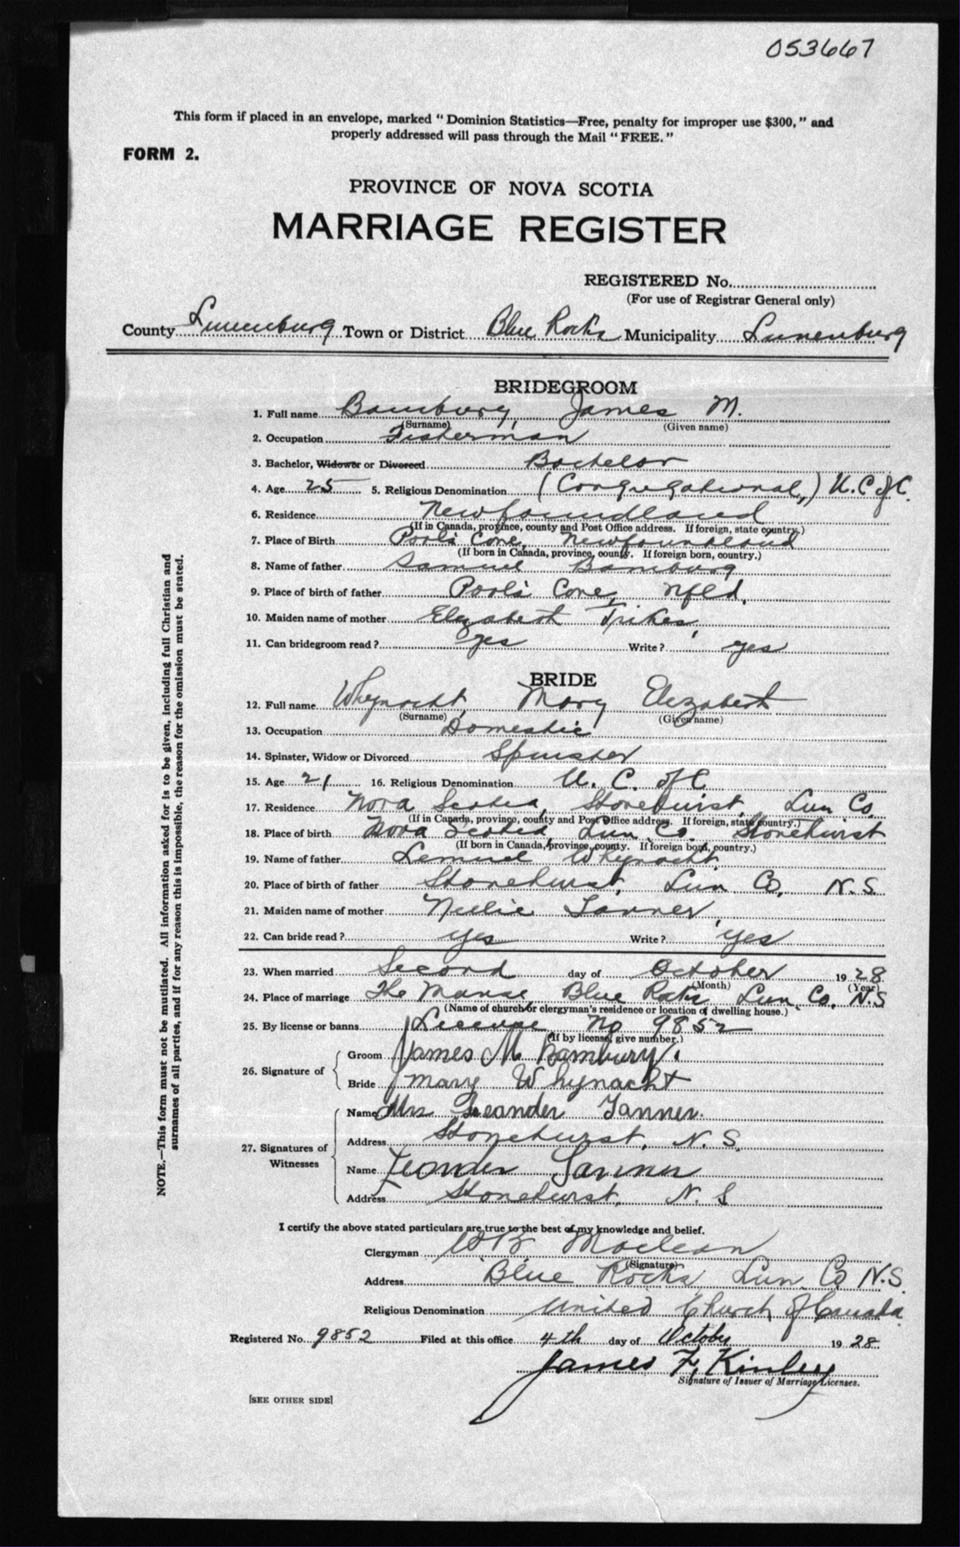 053667
This form if placed in an envelope, marked "Dominion Statistics—Free, penalty for improper use $300," and
properly addressed will pass through the Mail "FREE."
FORM 2.
PROVINCE OF NOVA SCOTIA
MARRIAGE REGISTER
REGISTERED No.
(For use of Registrar General only)
County Lunenburg Town or District Blue Rocks Municipality Lunenburg
BRIDEGROOM
1. Full name Bambury, James M.
(Surname) (Given name)
2. Occupation Fisherman
3. Bachelor, Widower or Divorced Bachelor
4. Age 25 5. Religious Denomination (Congregational,) U.C of C.
6. Residence Newfoundland
(If in Canada, province, county and Post Office address. If foreign, state country.)
7. Place of Birth Pool's Cove, Newfoundland
(If born in Canada, province, county. If foreign born, country.)
8. Name of father Samuel Bambury
9. Place of birth of father Pool's Cove, Nfld.
10. Maiden name of mother Elizabeth
11. Can bridegroom read? yes Write? yes
BRIDE
12. Full name Whynacht, Mary Elizabeth
(Surname) (Given name)
13. Occupation Domestic
14. Spinster, Widow or Divorced Spinster
15. Age 21 16. Religious Denomination U. C. of C.
17. Residence Nova Scotia, Stonehurst, Lun Co
(If in Canada, province, county and Post Office address. If foreign, state country.)
18. Place of birth Nova Scotia Lun Co. Stonehurst
(If born in Canada, province, county. If foreign born, country.)
19. Name of father Lemuel Whynacht
20. Place of birth of father Stonehurst, Lun Co, N.S.
21. Maiden name of mother Nellie Tanner
22. Can bride read? yes Write? yes
23. When married Second day of October 1928
(Month) (Year)
24. Place of marriage The Manse, Blue Rocks, Lun, Co, N.S
(Name of church or clergyman's residence or location of dwelling house.)
25. By license or banns License No 9852
(If by license, give number.)
26. Signature of
Groom James M Bambury.
Bride Mary Whynacht
27. Signatures of Witnesses
Name Mrs Leander Tanner.
Address Stonehurst, N.S.
Name Leander Tanner
Address Stonehurst, N.S
I certify the above stated particulars are true to the best of my knowledge and belief.
Clergyman Maclean
(Signature)
Address Blue Rocks Lun Co N.S.
Religious Denomination United Church of Canada.
Registered No. 9852 Filed at this office 4th day of October 1928.
James F. Kinley
Signature of Issuer of Marriage Licenses.
[SEE OTHER SIDE]
NOTE.—This form must not be mutilated. All information asked for is to be given, including full Christian and
surnames of all parties, and if for any reason this is impossible, the reason for the omission must be stated.